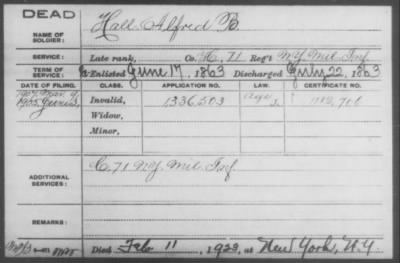 DEAD
NAME OF SOLDIER: Hall Alfred B.
SERVICE: Late rank, Co. H. 71 Reg't N.Y. Mil. Inf.
TERM OF SERVICE: Enlisted June 17, 1863 Discharged July 22, 1863
DATE OF FILING. CLASS. APPLICATION NO. LAW. CERTIFICATE NO.
1907 Mar. 9 Invalid, 1336,503
1905 June
Widow,
Minor,
ADDITIONAL SERVICES: C. 71 N.Y. Mil. Inf.
REMARKS:
Died Feb 11, 1923, at New York, N.Y.